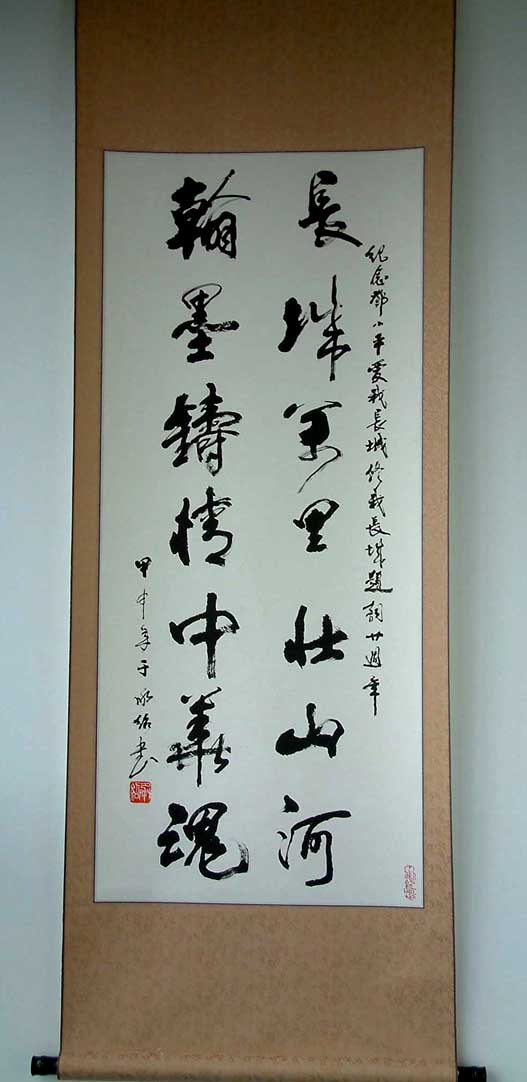 紀念鄧小平愛我長城修我長城題詞廿週年
長城萬里壯山河
翰墨鑄情中華魂
甲申年于永俗书